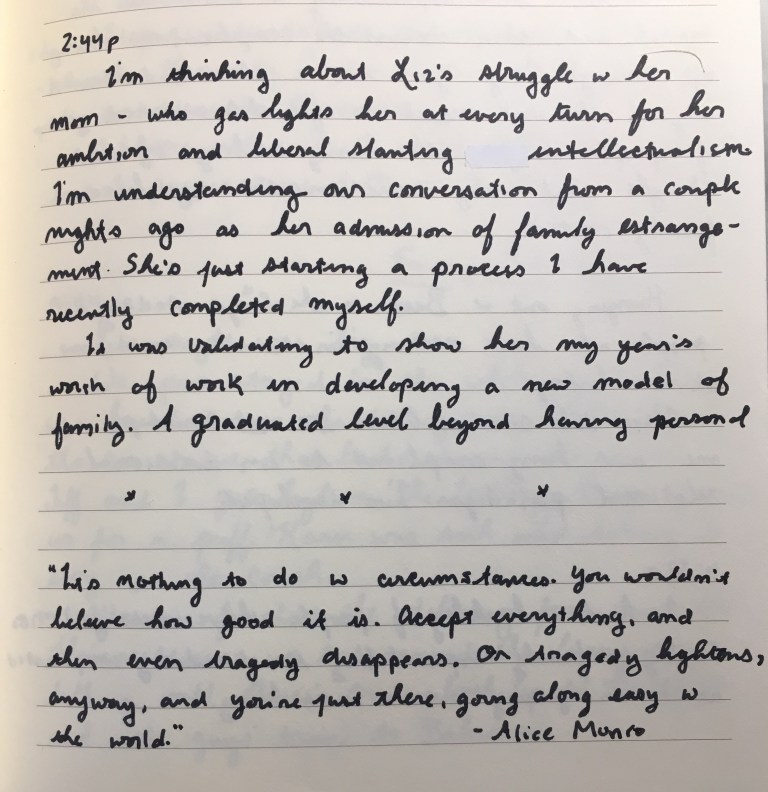 2:44p
I'm thinking about Liz's struggle w her
mom - who gas lights her at every turn for her
ambition and liberal slanting intellectualism.
I'm understanding our conversation from a couple
nights ago as her admission of family estrange-
ment. She's just starting a process I have
recently completed myself.
It was validating to show her my year's
worth of work in developing a new model of
family. A graduated level beyond having personal
* * *
"It's nothing to do w circumstances. You wouldn't
believe how good it is. Accept everything, and
then even tragedy disappears. Or tragedy lightens,
anyway, and you're just there, going along easy w
the world."
- Alice Munro